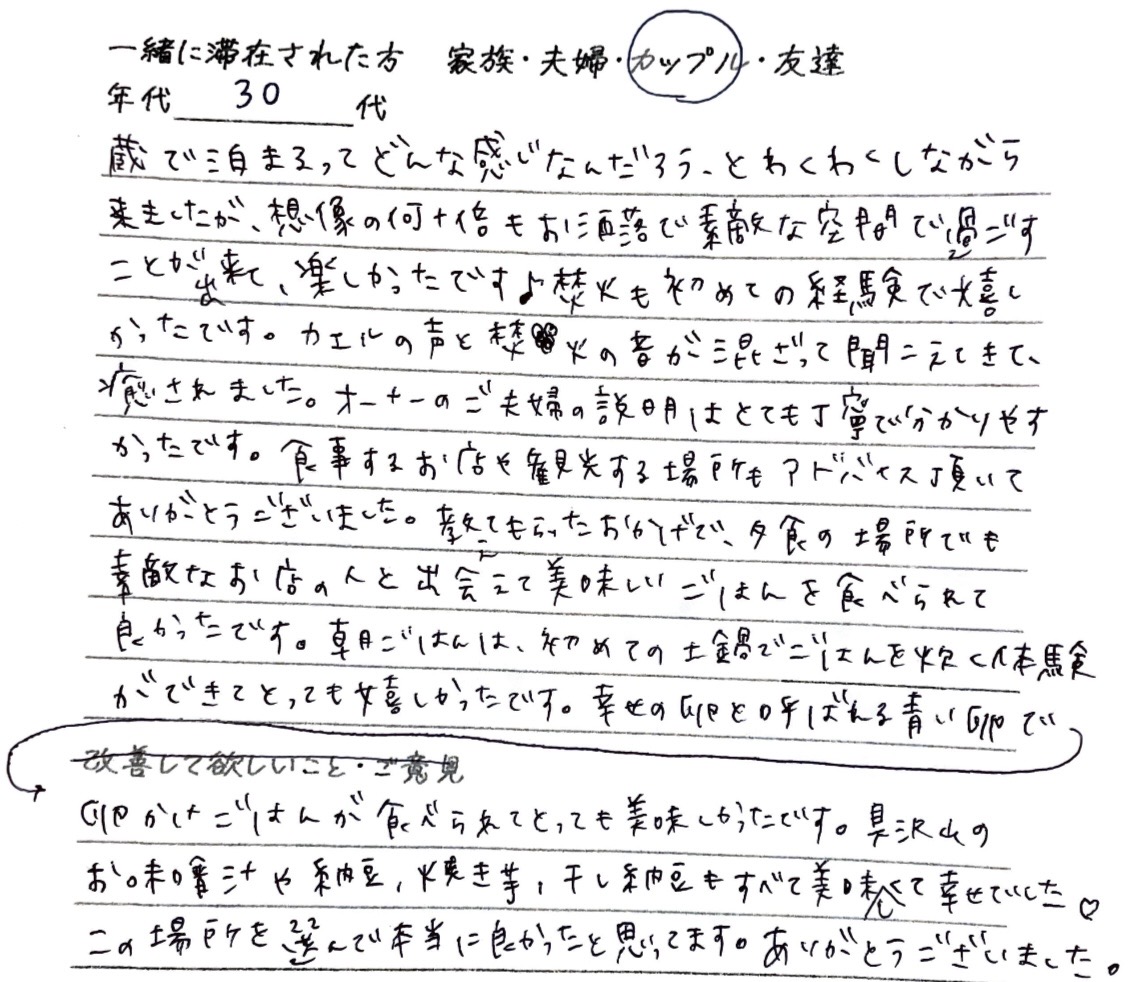 一緒に滞在された方 家族・夫婦・カップル・友達
年代 30 代
蔵で泊まるってどんな感じなんだろう、とわくわくしながら
来ましたが、想像の何十倍もお洒落で素敵な空間で過ごす
ことが出来て、楽しかったです♪焚火も初めての経験で嬉し
かったです。カエルの声と焚火の音が混ざって聞こえてきて、
癒されました。オーナーのご夫婦の説明はとても丁寧で分かりやす
かったです。食事するお店や観光する場所もアドバイス頂いて
ありがとうございました。教えてもらったおかげで、夕食の場所でも
素敵なお店の人と出会えて美味しいごはんを食べられて
良かったです。朝ごはんは、初めての土鍋でごはんを炊く体験
ができてとっても嬉しかったです。幸せの卵と呼ばれる青い卵で
改善して欲しいこと・ご意見
卵かけごはんが食べられてとっても美味しかったです。具沢山の
お味噌汁や納豆、焼き芋、干し納豆もすべて美味しくて幸せでした♡
この場所を選んで本当に良かったと思ってます。ありがとうございました。